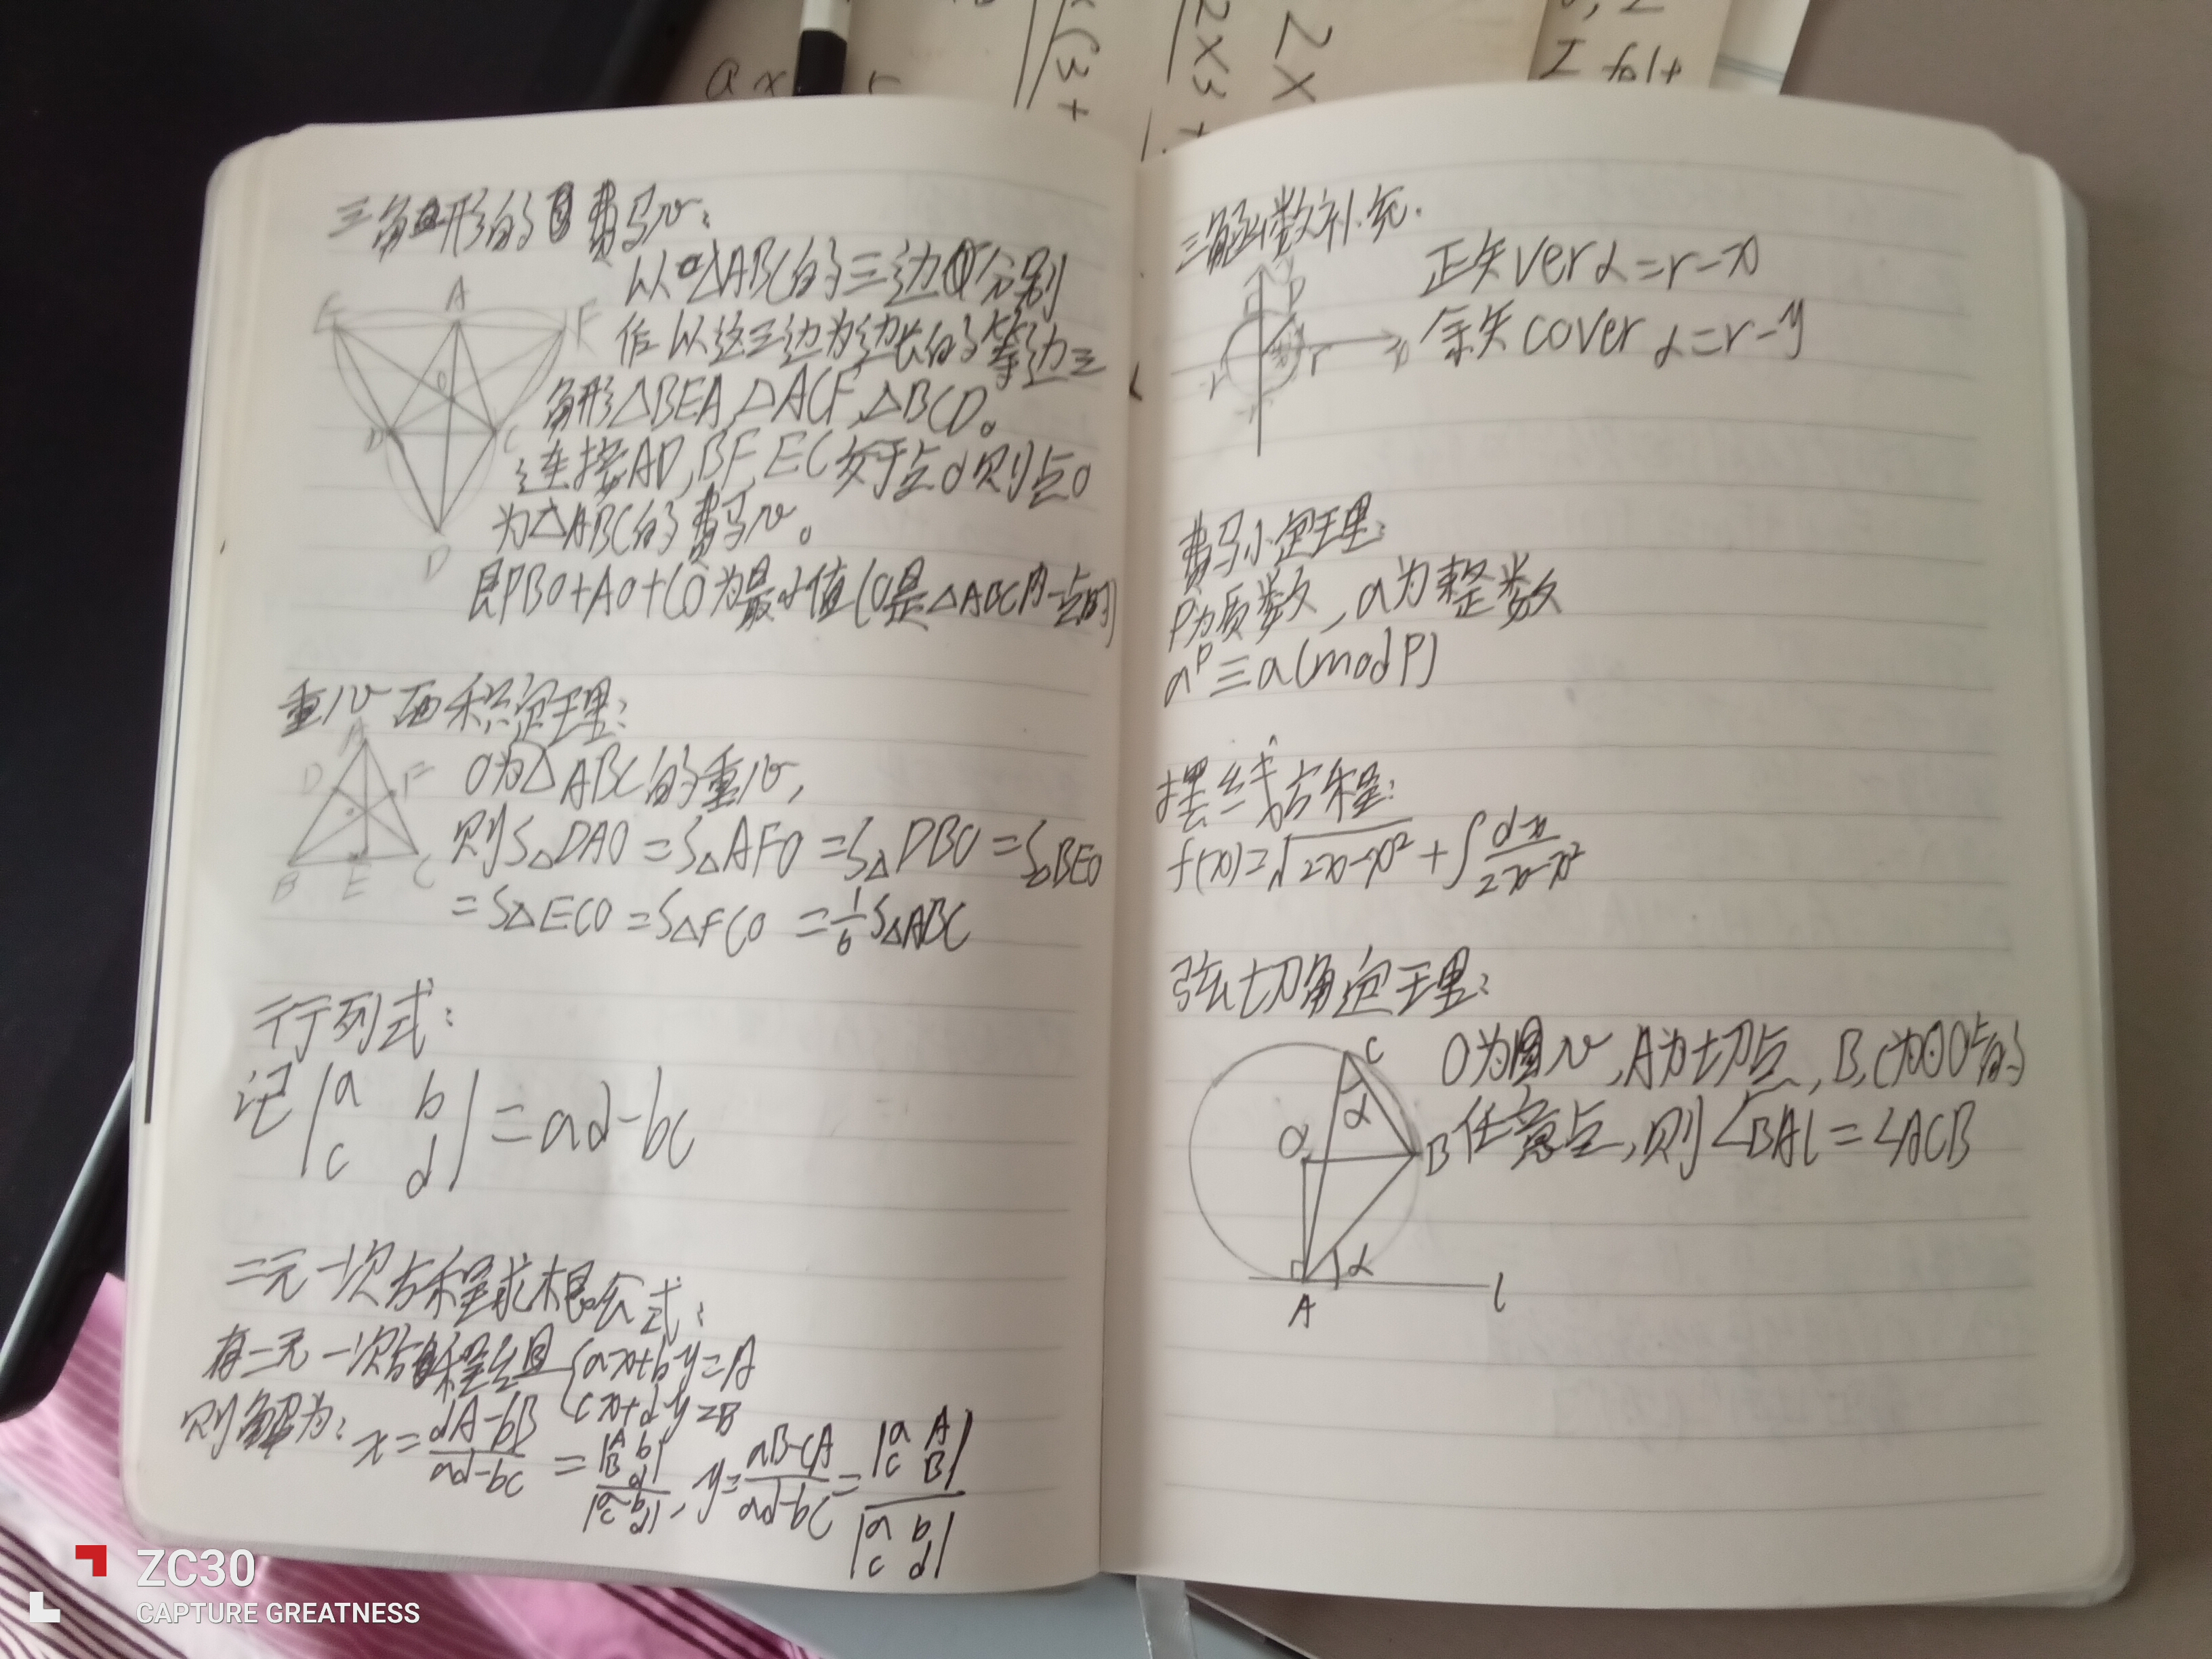 三角形的费马心:
以△ABC的三边分别
作以这三边为边长的等边三
角形△BEA,△ACF,△BCD。
连接AD,BF,EC交于点O则点O
为△ABC的费马心。
即BO+AO+CO为最小值(O是△ABC内一点时)
E A F
O
B C
D
重心面积定理:
O为△ABC的重心,
则S△DAO=S△AFO=S△DBO=S△BEO
=S△ECO=S△FCO=1/6S△ABC
A
D F
B E C
行列式:
记|a b|=ad-bc
|c d|
二元一次方程求根公式:
有二元一次方程组{ax+by=A
cx+dy=B
则解为:x=(dA-bB)/(ad-bc)=|A b; B d|/|a b; c d|,y=(aB-cA)/(ad-bc)=|a A; c B|/|a b; c d|
三角函数补充.
正矢ver α=r-x
余矢cover α=r-y
r
费马小定理:
P为质数,a为整数
a^P≡a(mod P)
摆线方程:
f(x)=√(2x-x²)+∫dx/(2x-x²)
弦切角定理:
O为圆心,A为切点,B,C为⊙O上的
任意点,则∠BAl=∠ACB
C
α
O
B
α
A
l
ax
2X
2X3+
(3+
I felt
ZC30
CAPTURE GREATNESS